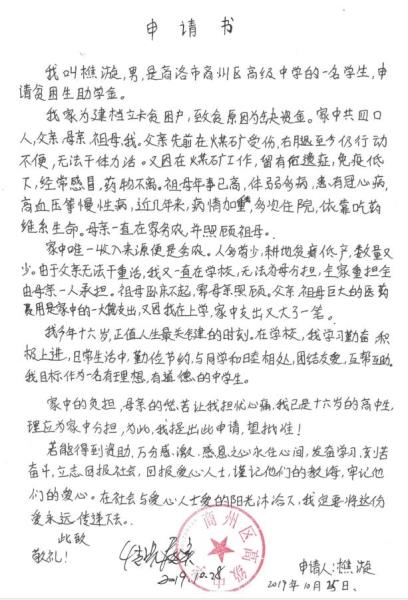 申请书
我叫樵漩,男,是商洛市商州区高级中学的一名学生,申
请贫困生助学金。
我家为建档立卡贫困户,致贫原因为缺资金。家中共四口
人,父亲、母亲、祖母、我。父亲先前在煤矿受伤,右腿至今仍行动
不便,无法干体力活。又因在煤矿工作,留有后遗症,免疫低
下,经常感冒,药物不离。祖母年事已高,体弱多病,患有冠心病,
高血压等慢性病;近几年来,病情加重,多次住院,依靠吃药
维系生命。母亲一直在家务农,并照顾祖母。
家中唯一收入来源便是务农。人多劳少,耕地贫瘠低产,数量又
少。由于父亲无法干重活,我又一直在学校,无法为母分担,全家重担全
由母亲一人承担。祖母卧床不起,需母亲照顾。父亲、祖母巨大的医药
费用是家中的一大笔支出,又因我在上学,家中支出又大了一笔。
我今年十六岁,正值人生最关键的时刻。在学校,我学习勤奋,积
极上进,日常生活中,勤俭节约,与同学和睦相处,团结友爱,互帮互助。
我目标作为一名有理想,有道德的中学生。
家中的负担,母亲的愁苦让我担忧心痛,我已是十六岁的高中生,
理应为家中分担,为此,我提出此申请,望批准!
若能得到资助,万分感激,感恩之心永住心间,发奋学习,刻苦
奋斗,立志回报社会,回报爱心人士,谨记他们的教诲,牢记他
们的爱心。在社会与爱心人士爱的阳光沐浴下,我定要将这份
爱永远传递下去。
此致
敬礼!
2019.10.28
商州区高级
申请人:樵漩
2019年10月25日、